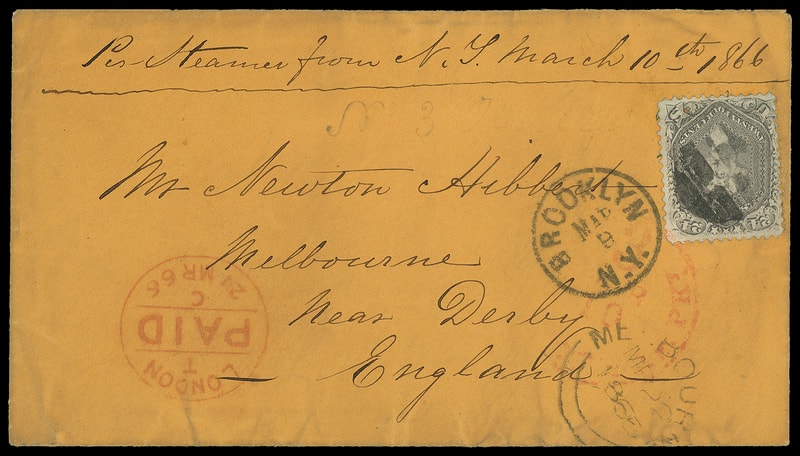 Per Steamer from N.Y. March 10th 1866
No 3
Mr Newton Hibbert
Melbourne
Near Derby
England
BROOKLYN
MAR
8
N.Y.
LONDON
T
PAID
C
MR 66